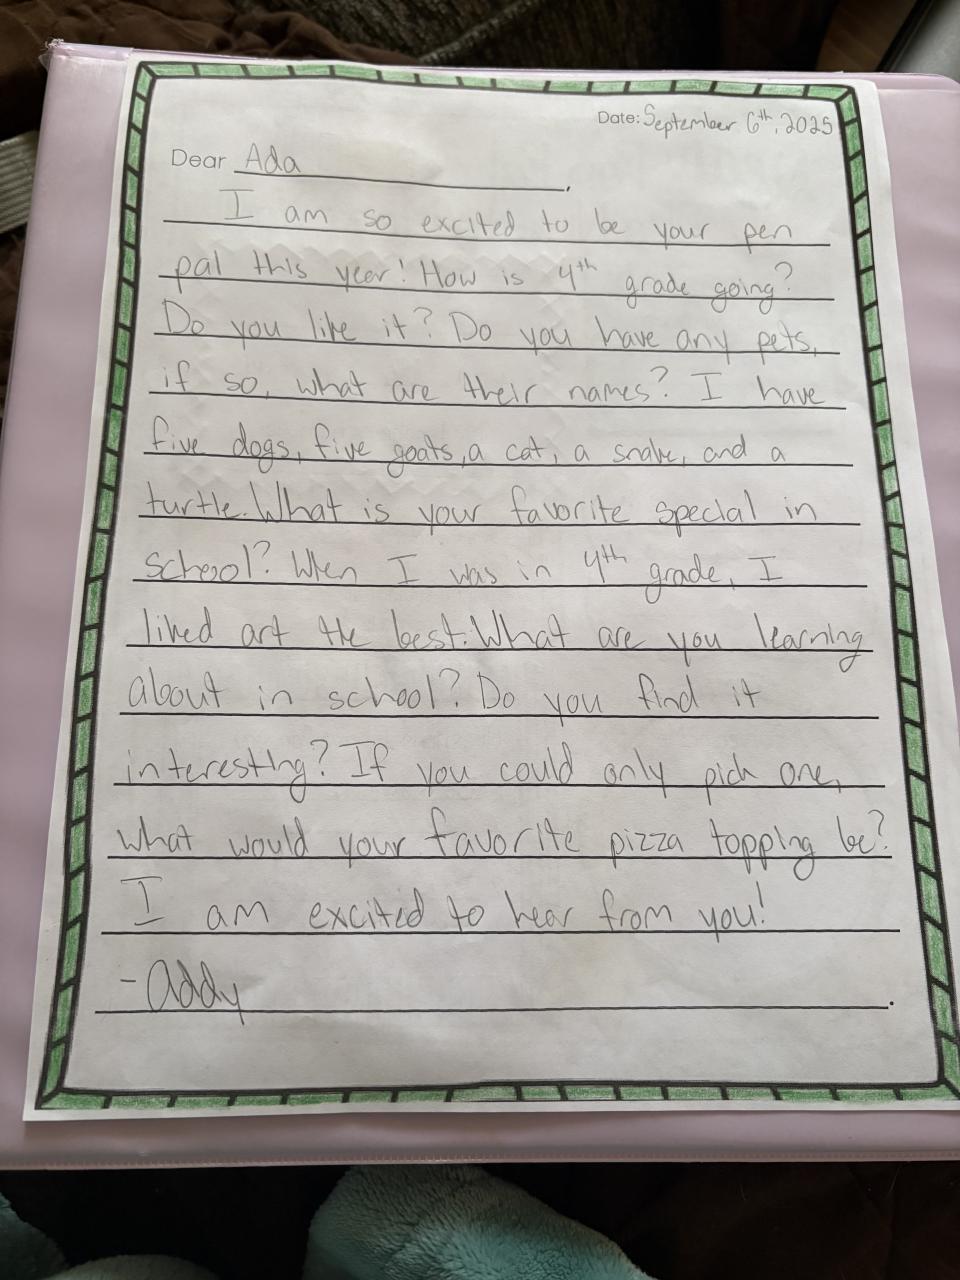 Date: September 6th, 2025
Dear Ada,
I am so excited to be your pen
pal this year! How is 4th grade going?
Do you like it? Do you have any pets,
if so, what are their names? I have
five dogs, five goats, a cat, a snake, and a
turtle. What is your favorite special in
school? When I was in 4th grade, I
liked art the best. What are you learning
about in school? Do you find it
interesting? If you could only pick one,
what would your favorite pizza topping be?
I am excited to hear from you!
-Addy.